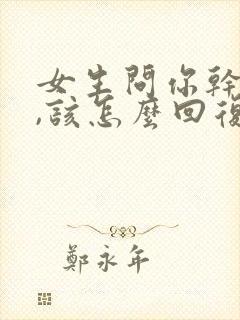 女生問你幹
,該怎麼回復
鄭永年